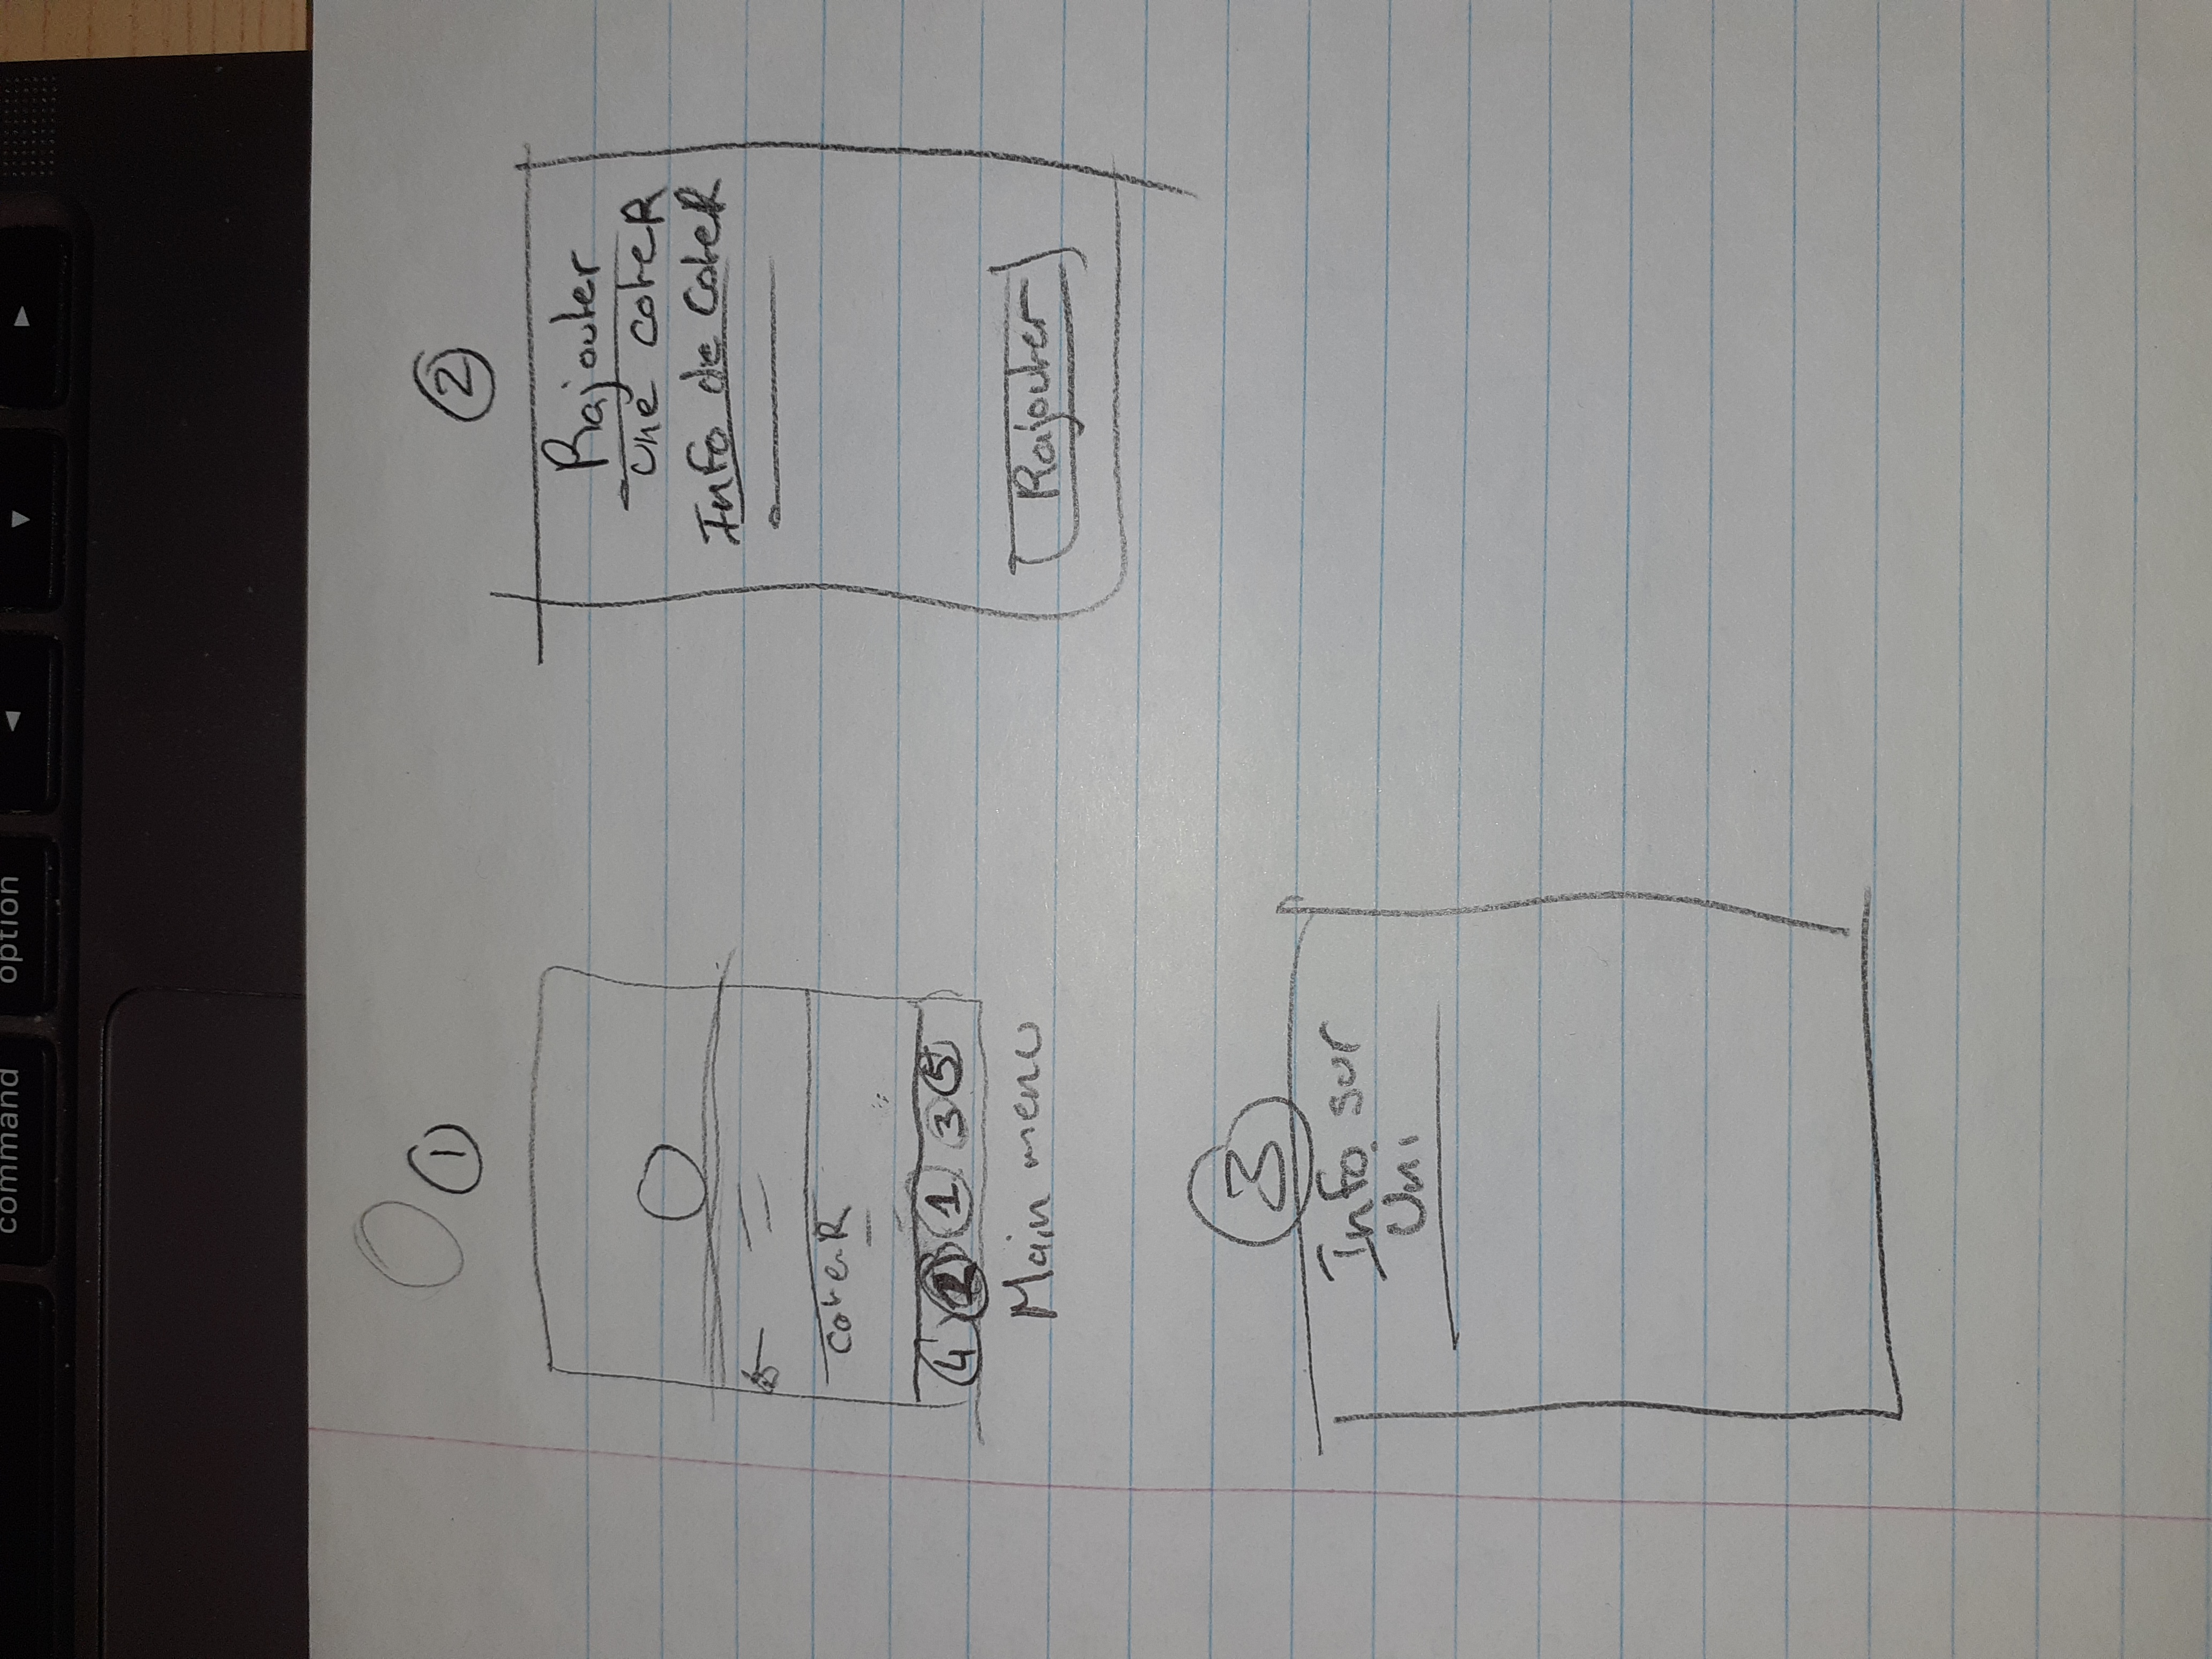 command option ◀ ▼ ▶
1
2
CoteR
4 2 1 3 5
Main menu
Rajouter
une coteR
Info de CoteR
Rajouter
3
Info sur
Uni